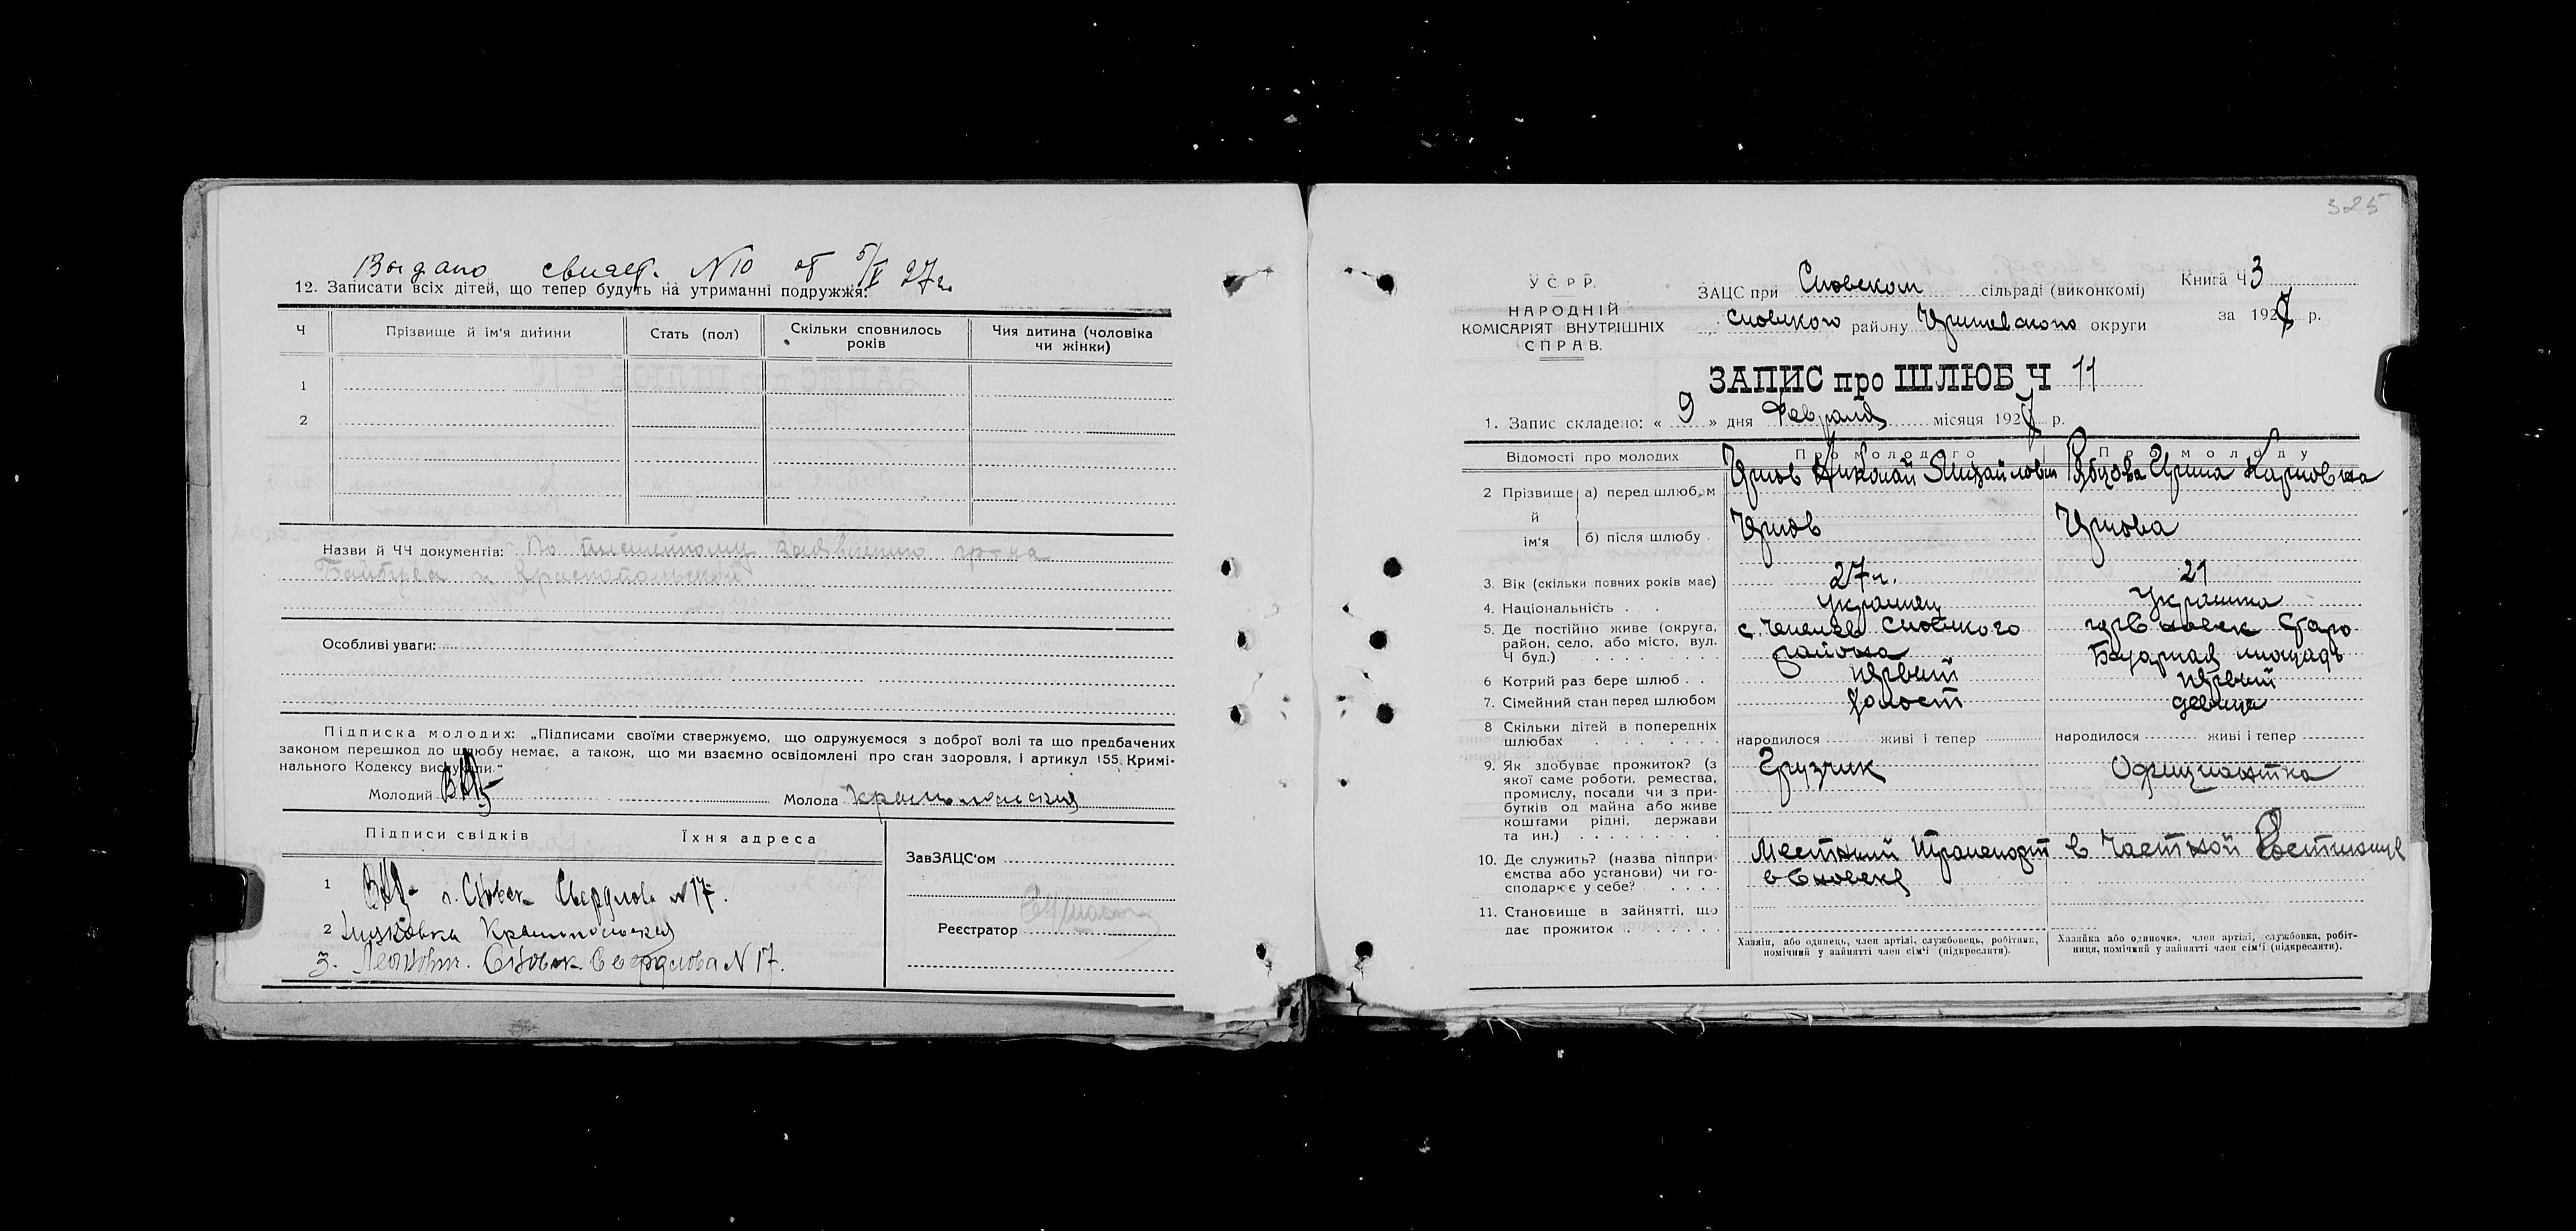 Выдано свидет. N10 от 5/V 27г.
12. Записати всіх дітей, що тепер будуть на утриманні подружжя:
Ч Прізвище й ім'я дитини Стать (пол) Скільки сповнилось років Чия дитина (чоловіка чи жінки)
1
2
Назви й ЧЧ документів: По письменному заявлению гр-на
Особливі уваги:
Підписка молодих: „Підписами своїми стверджуємо, що одружуємося з доброї волі та що предбачених
законом перешкод до шлюбу немає, а також, що ми взаємно освідомлені про стан здоров'я, і артикул 155 Кримі-
нального Кодексу вислухали."
Молодий Молода Краснопольская
Підписи свідків Їхня адреса
ЗавЗАЦС'ом
1 г. Сновск Свердлова N17.
2 Краснопольская
Реєстратор
3. Сновск Свердлова N 17.
325
УСРР.
НАРОДНІЙ
КОМІСАРІЯТ ВНУТРІШНІХ
СПРАВ.
ЗАЦС при Сновском сільраді (виконкомі)
Сновского району округи
Книга Ч 3
за 1927 р.
ЗАПИС про ШЛЮБ Ч 11
1. Запис складено: « 9 » дня Февраля місяця 1927 р.
Відомості про молодих Про молодого Про молоду
2 Прізвище й ім'я а) перед шлюбом Николай Михайлович Ирина Карповна
б) після шлюбу
3. Вік (скільки повних років має) 27 г. 21
4. Національність Украинец Украинка
5. Де постійно живе (округа, район, село, або місто, вул. Ч буд.) Сновского района Сновск Старо Базарная площадь
6 Котрий раз бере шлюб первый первый
7. Сімейний стан перед шлюбом холост девица
8 Скільки дітей в попередніх шлюбах народилося живі і тепер народилося живі і тепер
9. Як здобуває прожиток? (з якої саме роботи, ремества, промислу, посади чи з прибутків од майна або живе коштами рідні, держави та ин.) Грузчик Официантка
10. Де служить? (назва підприємства або установи) чи господарює у себе? Местный транспорт в Сновске в Частной Гостинице
11. Становище в зайнятті, що дає прожиток
Хазяїн, або одинець, член артілі, службовець, робітник, помічний у зайнятті член сім'ї (підкреслити).
Хазяйка або одиночка, член артілі, службовка, робітниця, помічний у зайнятті член сім'ї (підкреслити).